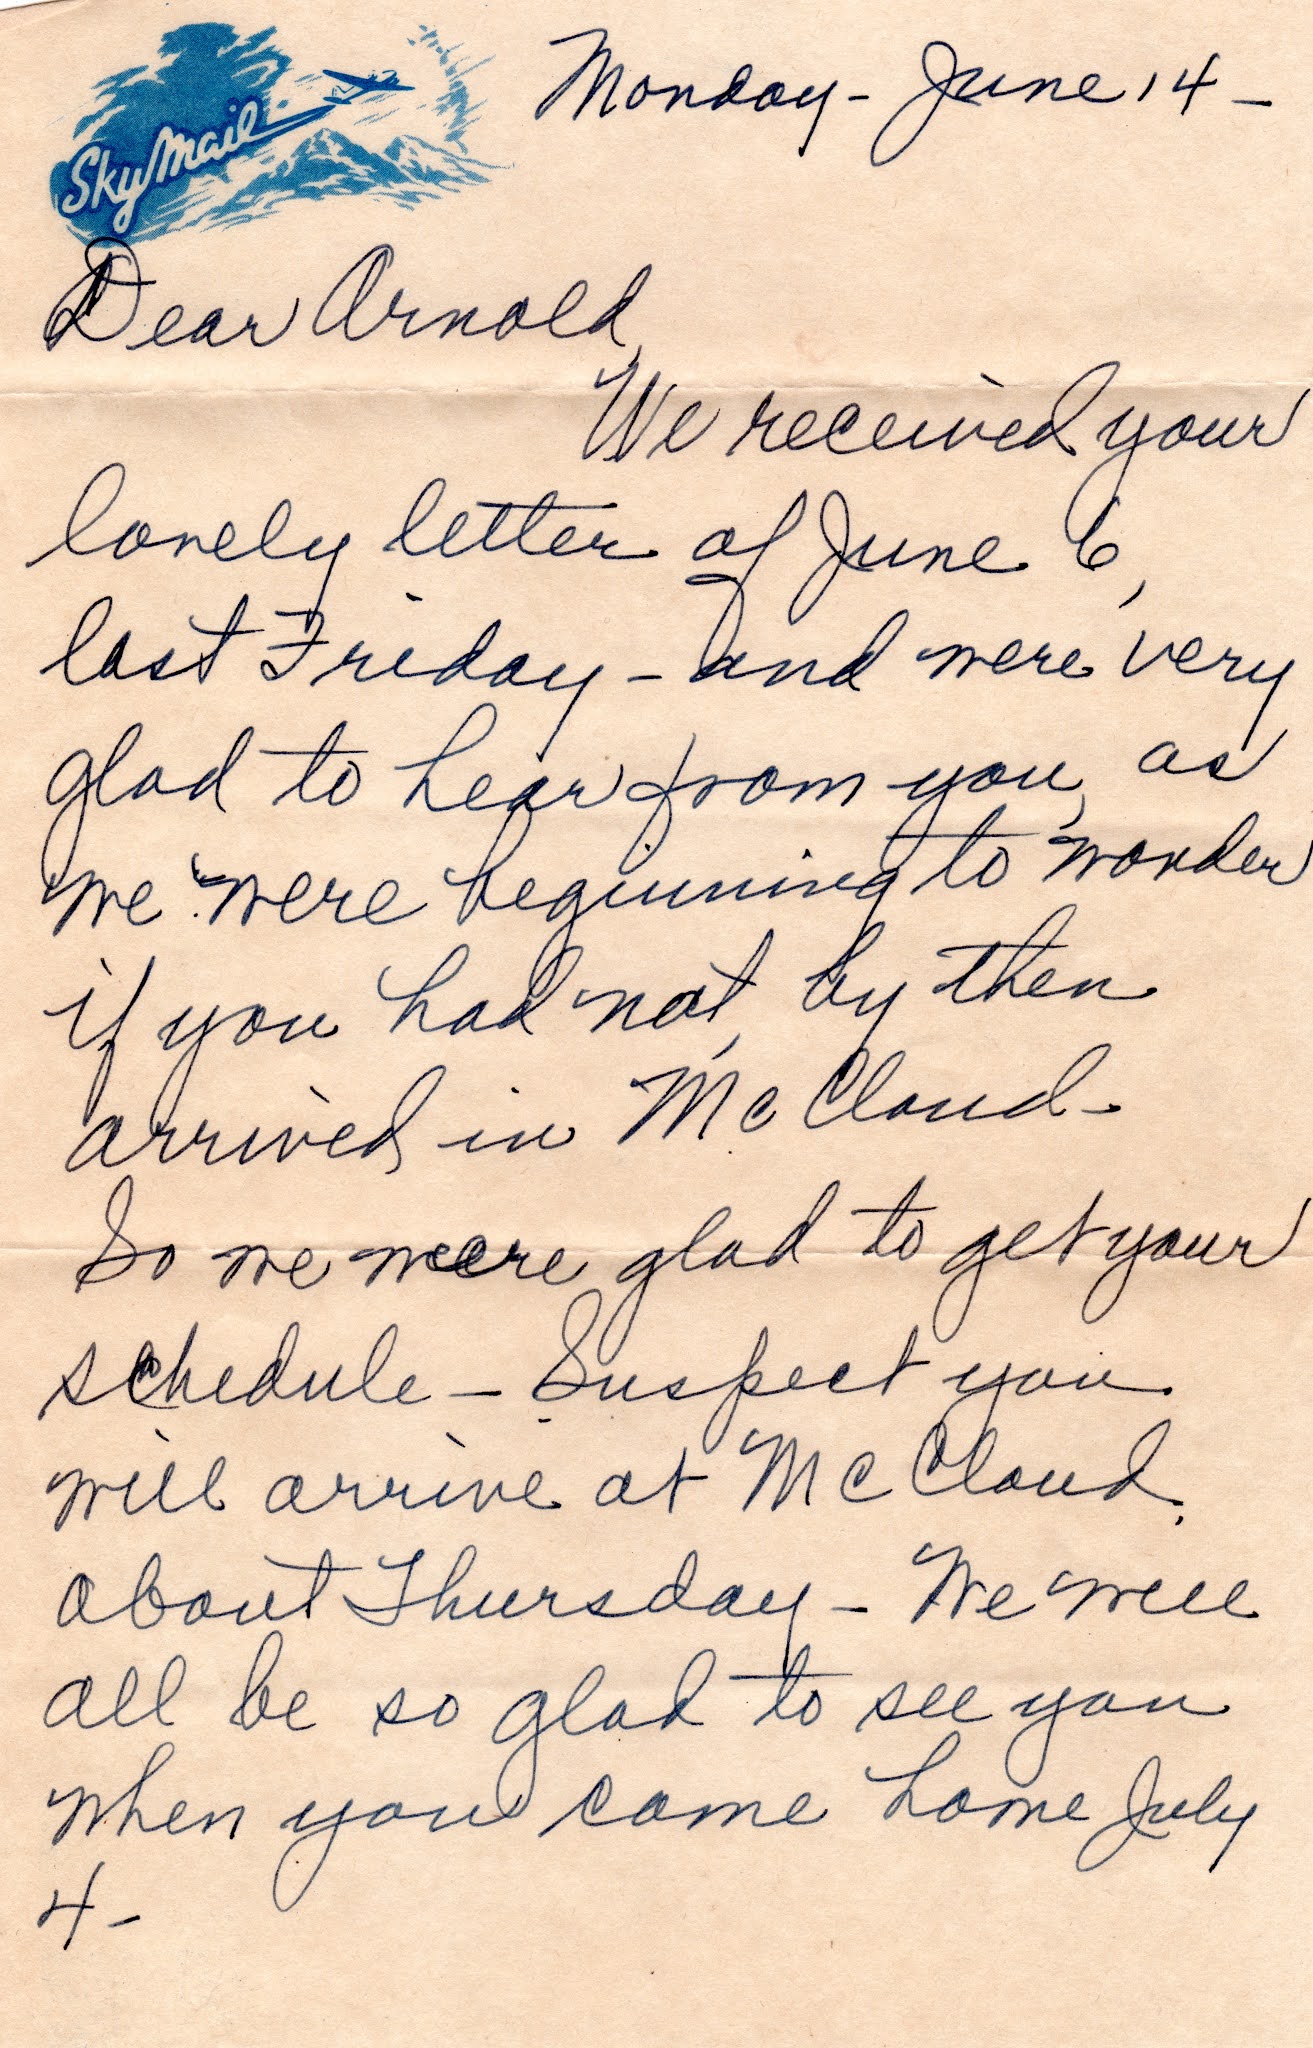 Sky Mail
Monday - June 14 -
Dear Arnold,
We received your
lovely letter of June 6,
last Friday - and were very
glad to hear from you, as
we were beginning to wonder
if you had not, by then
arrived in McCloud -
So we were glad to get your
schedule - Suspect you
will arrive at McCloud
about Thursday - We will
all be so glad to see you
when you come home July
4 -